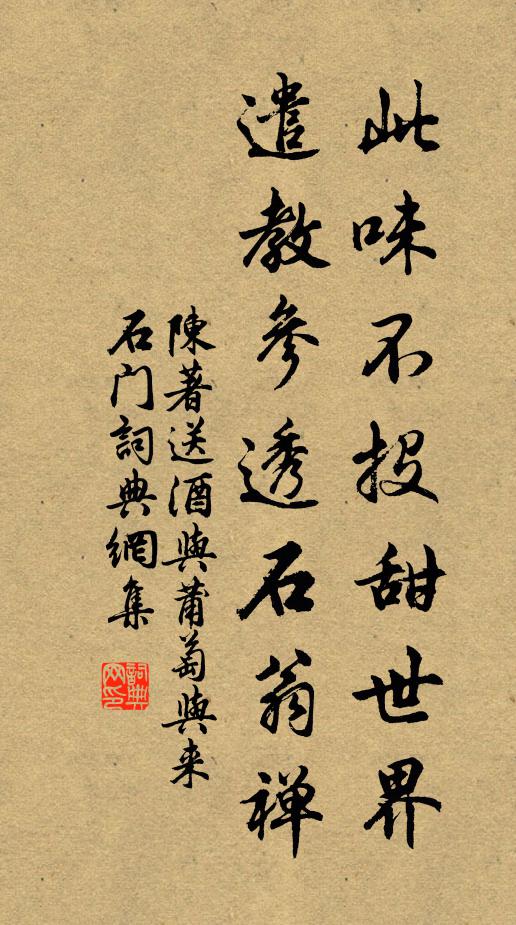 此味不投甜世界
遣教參透石翁禅
陳著送酒與莆萄與来
石门詞典網集
詞典
网印